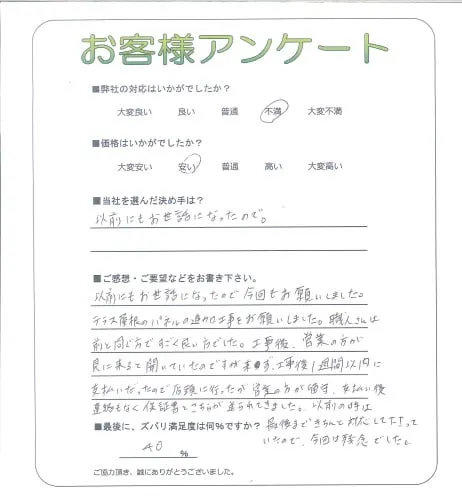 お客様アンケート
■弊社の対応はいかがでしたか？
大変良い 良い 普通 不満 大変不満
■価格はいかがでしたか？
大変安い 安い 普通 高い 大変高い
■当社を選んだ決め手は？
以前にもお世話になったので。
■ご感想・ご要望などをお書き下さい。
以前にもお世話になったので今回もお願いしました。
テラス屋根のパネルの追加工事をお願いしました。職人さんは
前と同じ方ですごく良い方でした。工事後、営業の方が
見に来ると聞いていたのですが来ず、工事後1週間以内に
支払いだったので店頭に行ったが営業の方が留守、支払い後
連絡もなく保証書とこちらが送られてきました。以前の時は
■最後に、ズバリ満足度は何%ですか？ 最後まできちんと対応して下さって
いたので、今回は残念でした。
40 %
ご協力頂き、誠にありがとうございました。